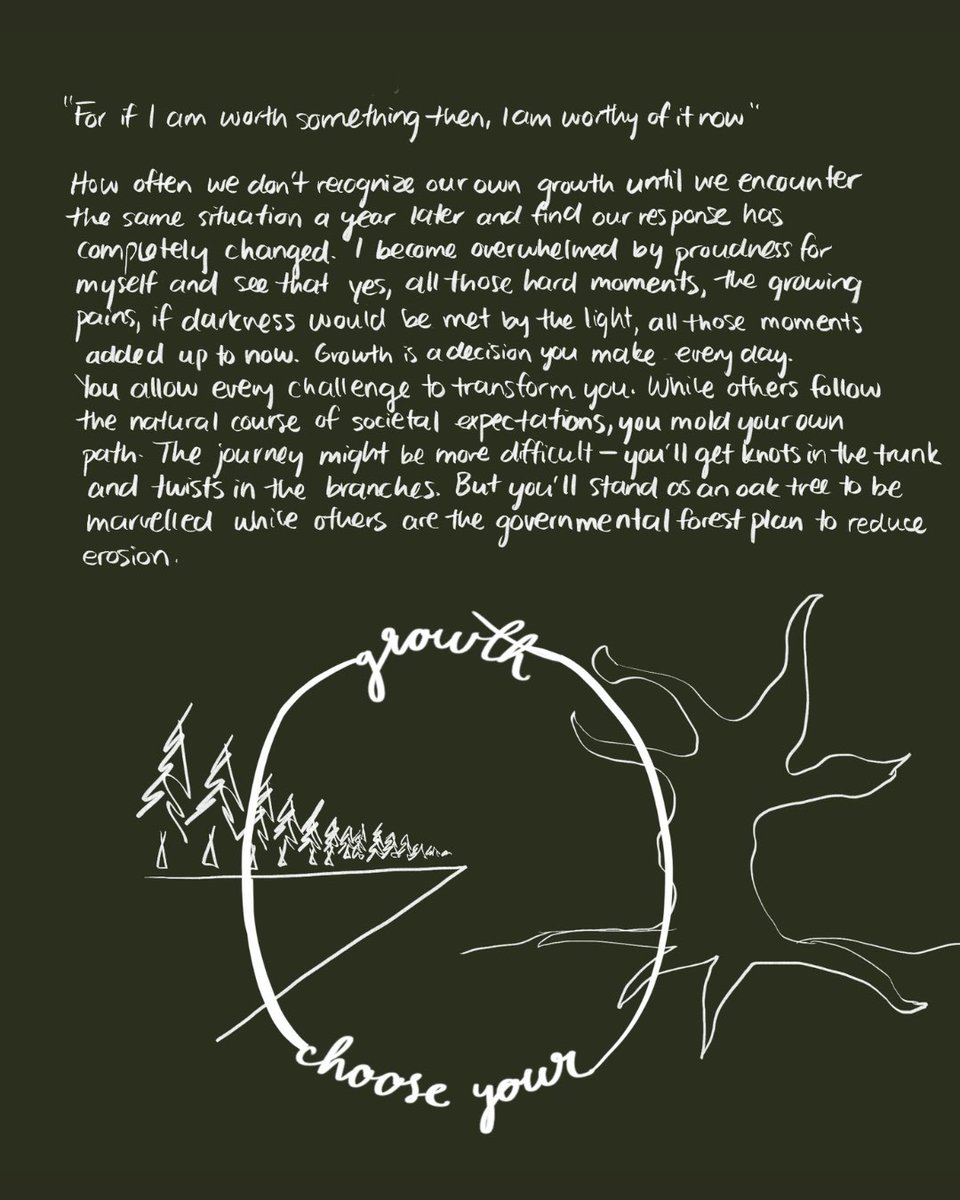 "For if I am worth something then, I am worthy of it now"
How often we don't recognize our own growth until we encounter
the same situation a year later and find our response has
completely changed. I become overwhelmed by proudness for
myself and see that yes, all those hard moments, the growing
pains, if darkness would be met by the light, all those moments
added up to now. Growth is a decision you make every day.
You allow every challenge to transform you. While others follow
the natural course of societal expectations, you mold your own
path. The journey might be more difficult – you'll get knots in the trunk
and twists in the branches. But you'll stand as an oak tree to be
marvelled while others are the governmental forest plan to reduce
erosion.
growth
choose your